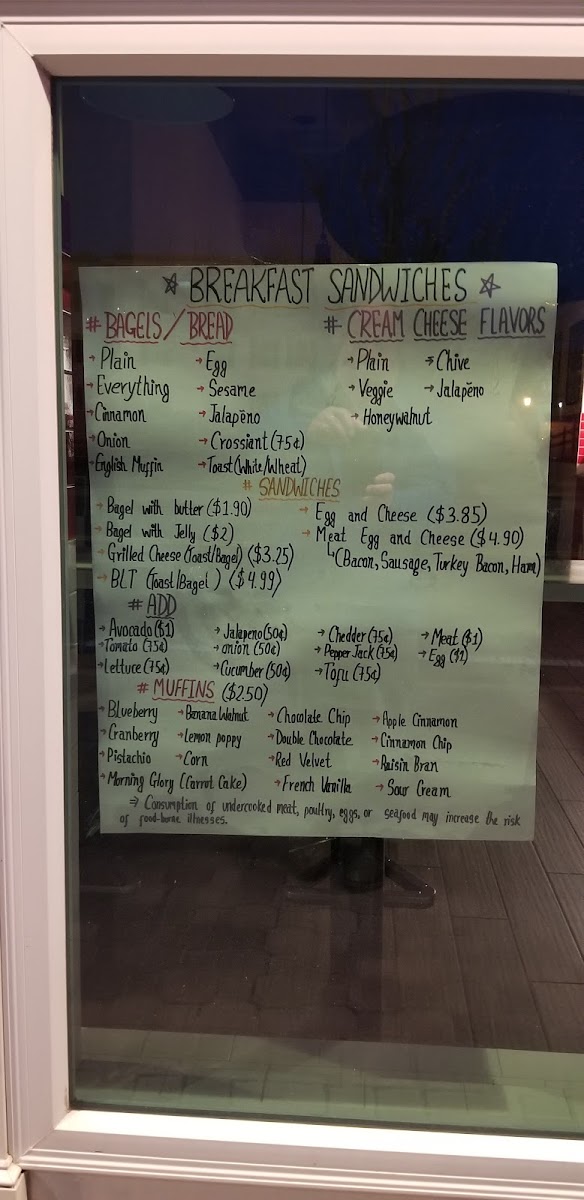 ☆ BREAKFAST SANDWICHES ☆
# BAGELS / BREAD
→ Plain → Egg
→ Everything → Sesame
→ Cinnamon → Jalapēno
→ Onion → Crossiant (75¢)
→ English Muffin → Toast (White/Wheat)
# CREAM CHEESE FLAVORS
→ Plain → Chive
→ Veggie → Jalapēno
→ Honeywalnut
# SANDWICHES
→ Bagel with butter ($1.90)
→ Bagel with Jelly ($2)
→ Grilled Cheese (Toast/Bagel) ($3.25)
→ BLT (Toast/Bagel) ($4.99)
→ Egg and Cheese ($3.85)
→ Meat Egg and Cheese ($4.90)
↳ (Bacon, Sausage, Turkey Bacon, Ham)
# ADD
→ Avocado ($1) → Jalapeno (50¢) → Chedder (75¢) → Meat ($1)
→ Tomato (75¢) → onion (50¢) → Pepper Jack (75¢) → Egg ($1)
→ Lettuce (75¢) → Cucumber (50¢) → Tofu (75¢)
# MUFFINS ($2.50)
→ Blueberry → Banana Walnut → Chocolate Chip → Apple Cinnamon
→ Cranberry → Lemon poppy → Double Chocolate → Cinnamon Chip
→ Pistachio → Corn → Red Velvet → Raisin Bran
→ Morning Glory (Carrot Cake) → French Vanilla → Sour Cream
⇒ Consumption of undercooked meat, poultry, eggs, or seafood may increase the risk
of food-borne illnesses.